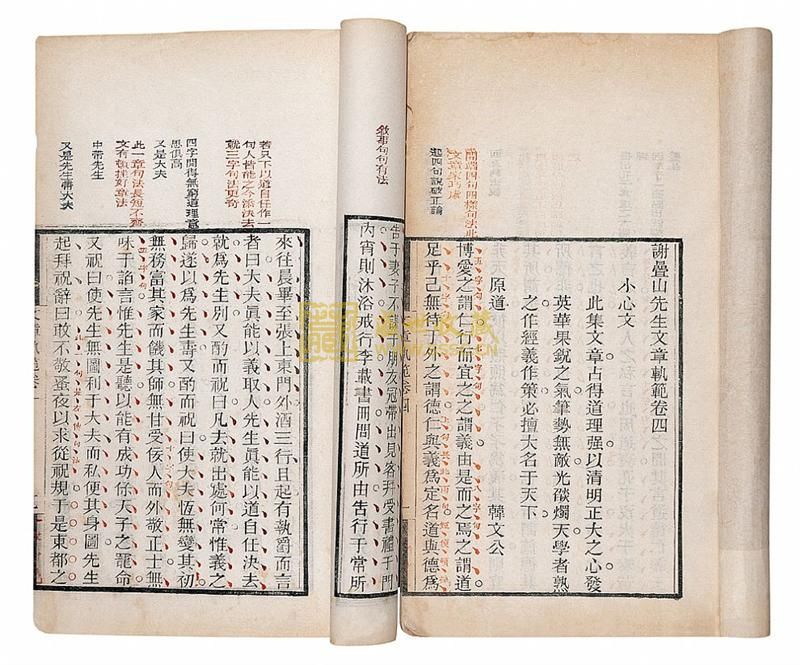 謝疊山先生文章軌範卷四
小心文
此集文章占得道理强以清明正大之心發
英華果銳之氣筆勢無敵光燄燭天學者熟
之作經義作策必擅大名于天下
原道 韓文公
開端四句四樣句法此
文章家巧處
起四句說破正論
博愛之謂仁行而宜之之謂義由是而之焉之謂道
足乎己無待于外之謂德仁與義為定名道與德為
文章軌範卷四
敘事句句有法
告于妻子不謀于朋友冠帶出見客拜受書禮于門
內宵則沐浴戒行李載書冊問道所由告行于常所
若只下以道自任作一
句人皆能之今添決去
就三字句法更奇
四字開得無窮道理意
思俱高
又是大夫
此一章句法長短不齊
文有頓挫好章法
中帶先生
又是先生壽大夫
來往晨畢至張上東門外酒三行且起有執爵而言
者曰大夫眞能以義取人先生眞能以道自任決去
就為先生別又酌而祝曰凡去就出處何常惟義之
歸遂以為先生壽又酌而祝曰使大夫恆無變其初
無務富其家而饑其師無甘受佞人而外敬正士無
味于諂言惟先生是聽以能有成功保天子之寵命
又祝曰使先生無圖利于大夫而私便其身圖先生
起拜祝辭曰敢不敬蚤夜以求從祝規于是東都之